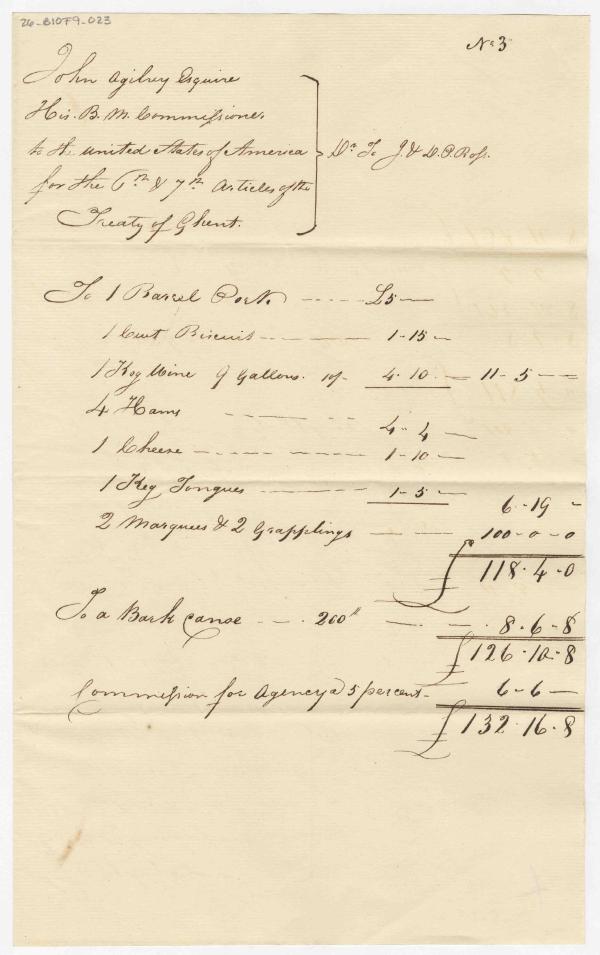 26-B10F9-023
No 3
John Ogilvy Esquire
His. B. M. Commissioner
to the United States of America
for the 6th & 7th Articles of the
Treaty of Ghent.
Dr To J. & D. P. Ross.
To 1 Barrel Pork ---- £5 —
1 Cwt Biscuit ---- 1-15 —
1 Keg Wine 9 Gallons. 10/- 4-10 — 11-5 —
4 Hams ---- 4-4 —
1 Cheese ---- 1-10 —
1 Keg Tongues ---- 1-5 — 6-19 —
2 Marquees & 2 Grapplings ---- 100-0-0
£ 118-4-0
To a Bark Canoe ---- 200 ---- 8-6-8
£ 126-10-8
Commission for Agency a 5 percent - 6-6 —
£ 132-16-8